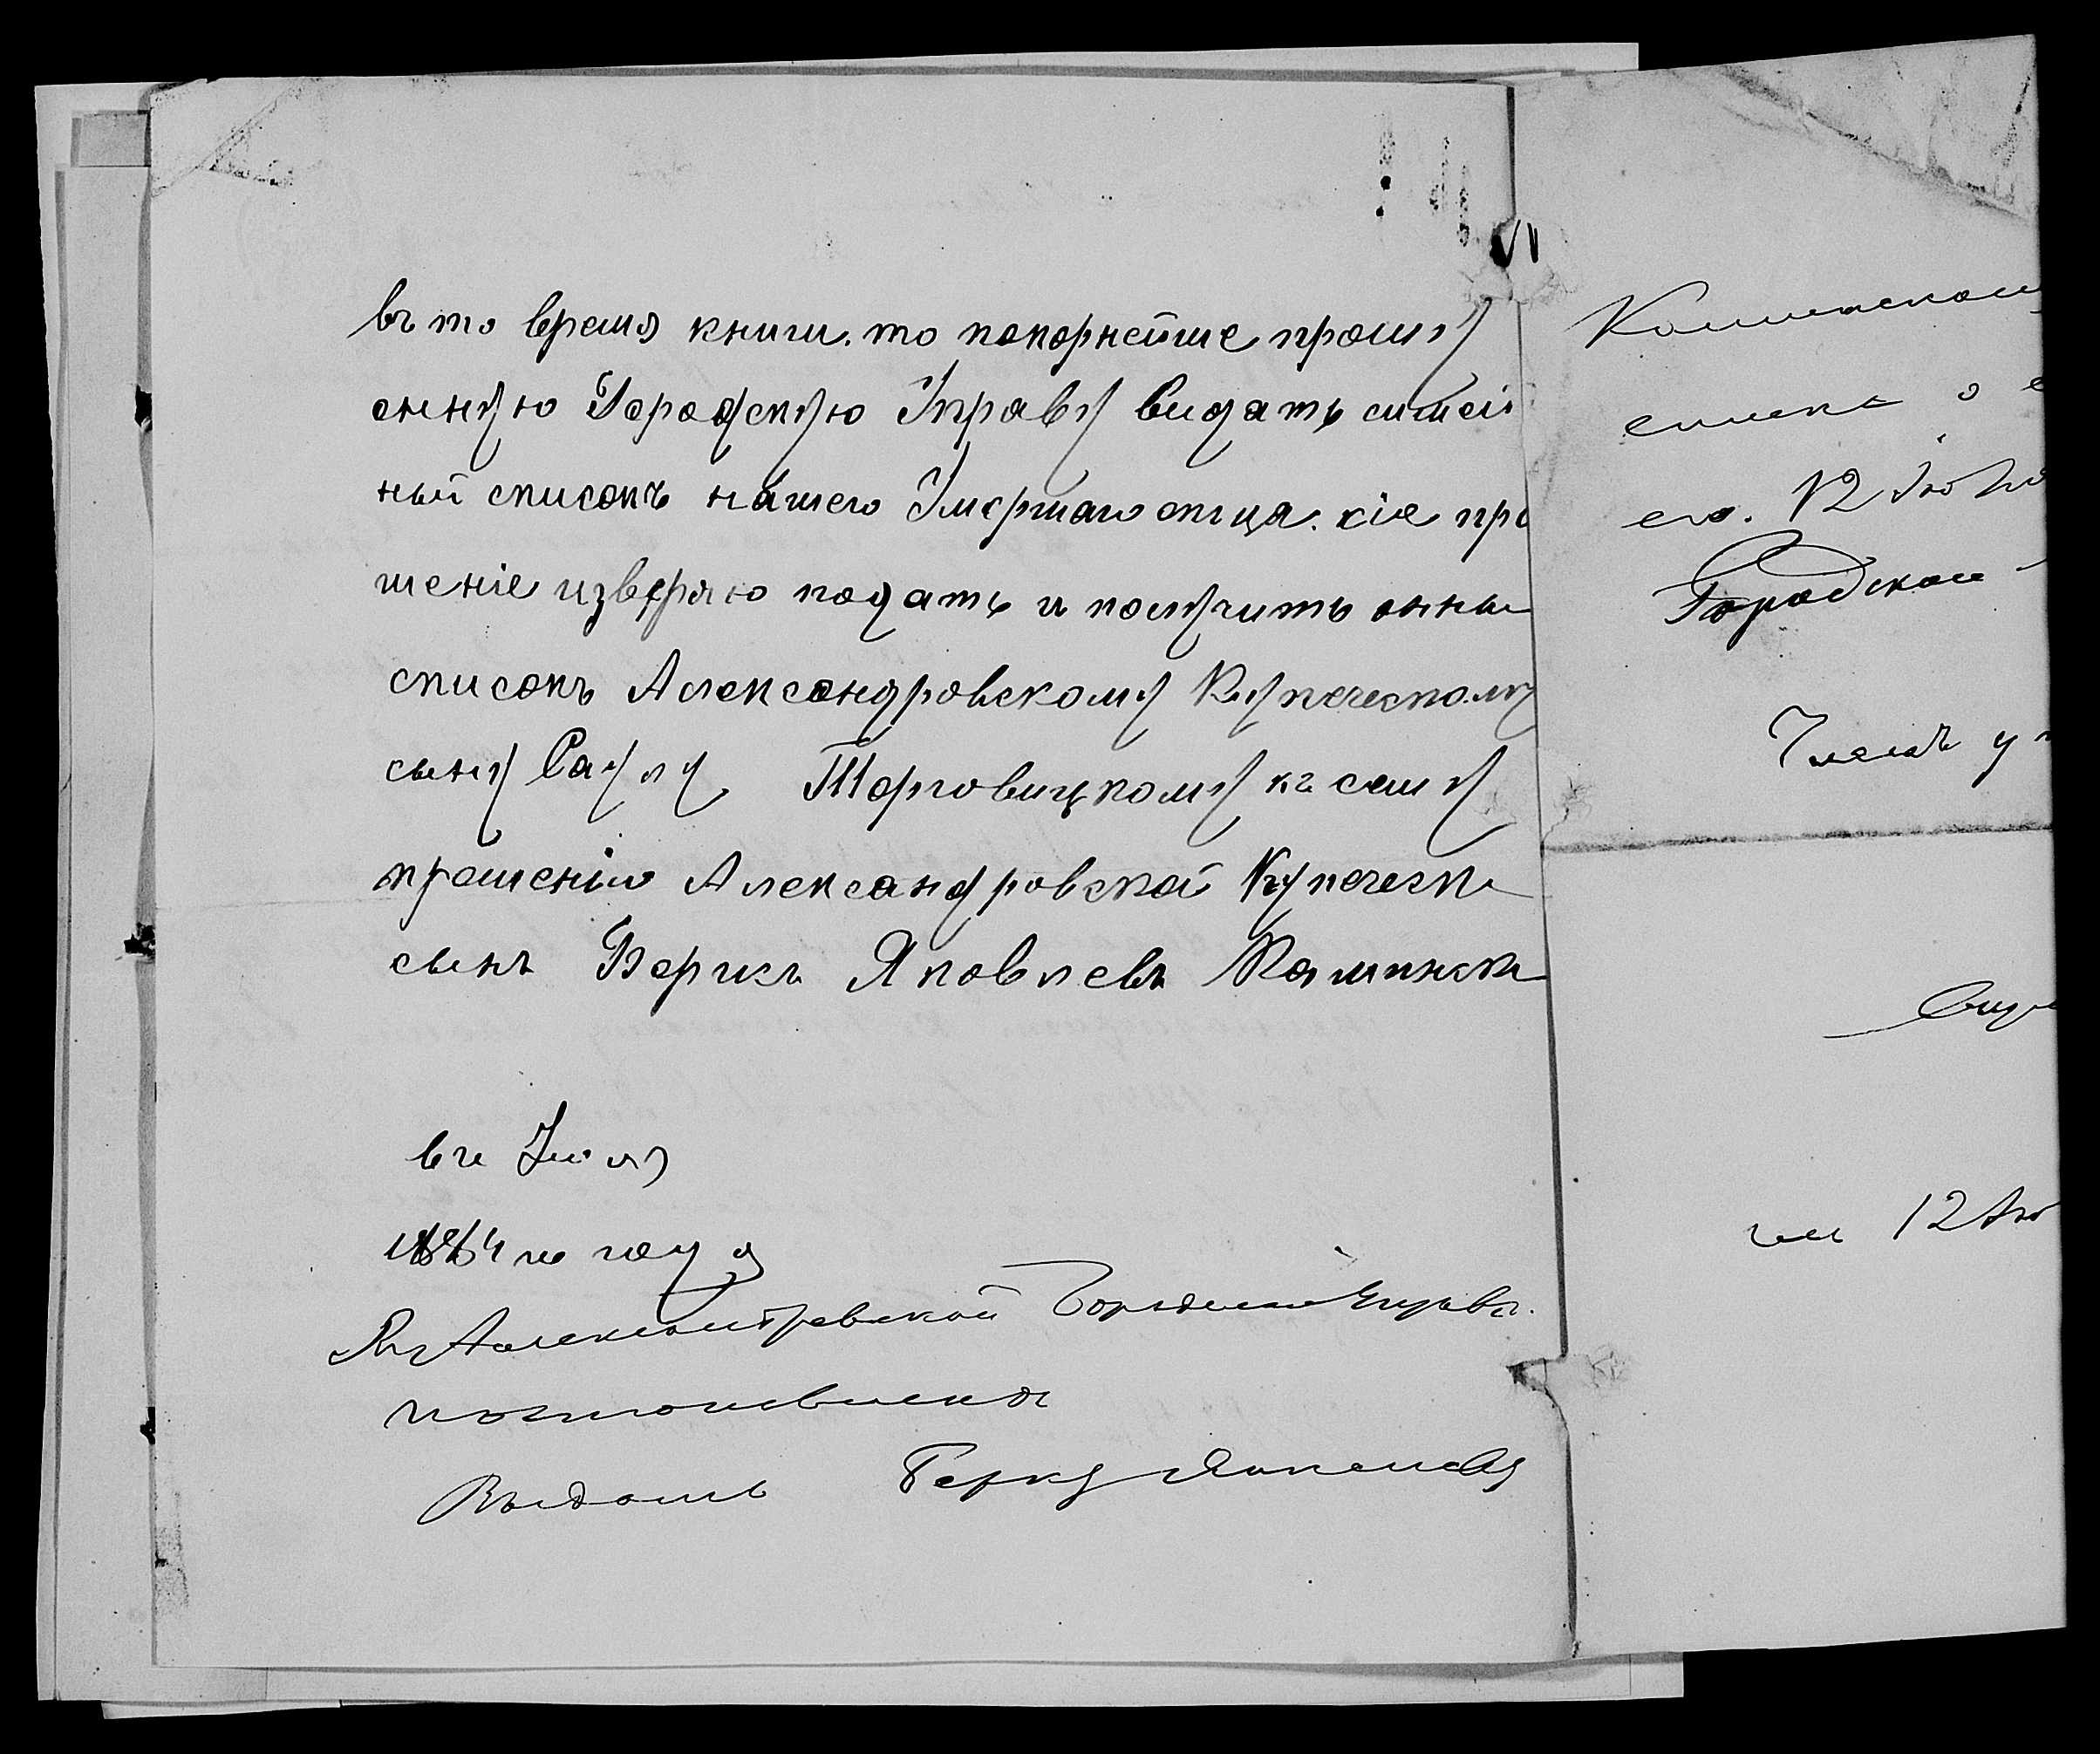 въ то время книги. то покорнейше прошу
снную Городскую Управу видать симей
ный список нашего Умершаго отца. сіе про
шеніе изверяю подать и получить онны
список Александровскому Купеческому
сыну Саулу Торговицкому къ сему
прошенію Александровской Купечески
сынъ Берикъ Яковлевъ Камински
въ Июля
1884 го года
Въ Александровской Городской Управы.
постановленоъ
Выдать Берку Яковлеву
Каминском
списка о
его. 12 Июля
Городской
Членъ у
12 Ию